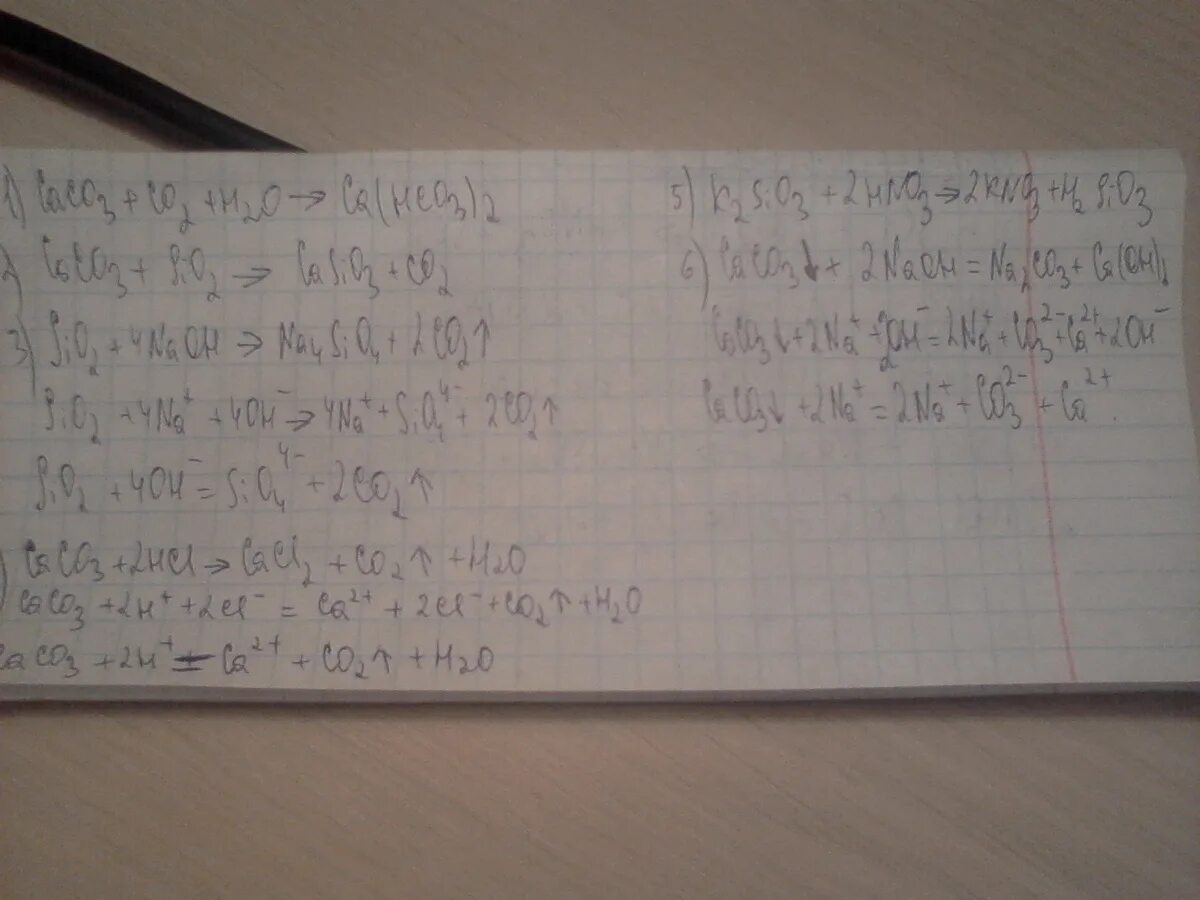 1) CaCO3 + CO2 + H2O → Ca(HCO3)2
2) CaCO3 + SiO2 → CaSiO3 + CO2
3) SiO2 + 4NaOH → Na4SiO4 + 2CO2↑
SiO2 + 4Na⁺ + 4OH⁻ → 4Na⁺ + SiO4⁴⁻ + 2CO2↑
SiO2 + 4OH⁻ = SiO4⁴⁻ + 2CO2↑
) CaCO3 + 2HCl → CaCl2 + CO2↑ + H2O
CaCO3 + 2H⁺ + 2Cl⁻ = Ca²⁺ + 2Cl⁻ + CO2↑ + H2O
CaCO3 + 2H⁺ = Ca²⁺ + CO2↑ + H2O
5) K2SiO3 + 2HNO3 → 2KNO3 + H2SiO3
6) CaCO3↓ + 2NaOH = Na2CO3 + Ca(OH)2
CaCO3↓ + 2Na⁺ + 2OH⁻ = 2Na⁺ + CO3²⁻ + Ca²⁺ + 2OH⁻
CaCO3↓ + 2Na⁺ = 2Na⁺ + CO3²⁻ + Ca²⁺.